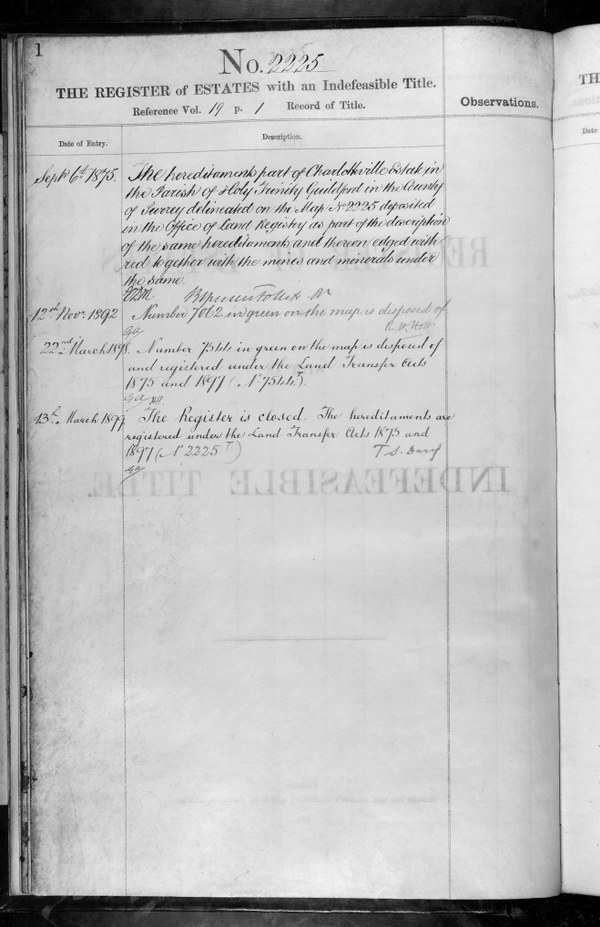 1
No. 2225
THE REGISTER of ESTATES with an Indefeasible Title.
Reference Vol. 19 p. 1 Record of Title.
Observations.
Date of Entry.
Description.
Septr 6th 1875.
The hereditaments part of Charlotteville Estate in
the Parish of Holy Trinity Guildford in the County
of Surrey delineated on the Map No 2225 deposited
in the Office of Land Registry as part of the description
of the same hereditaments and thereon edged with
red together with the mines and minerals under
the same.
12th Novr 1892
Number 7062 in green on the map is disposed of.
22nd March 1898.
Number 75444 in green on the map is disposed of
and registered under the Land Transfer Acts
1875 and 1897 (No 75444T).
13th March 1899
The Register is closed. The hereditaments are
registered under the Land Transfer Acts 1875 and
1897 (No 2225T)
INDEFEASIBLE TITLE.
TH
Date